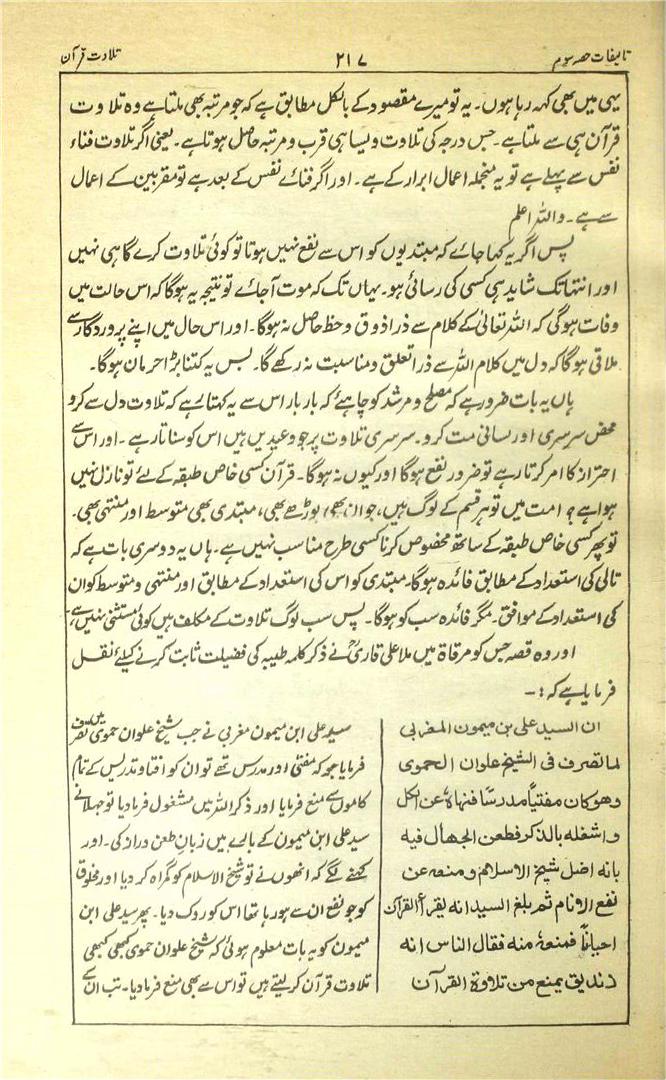 تالیفات حصہ سوم ۲۱۷ تلاوت قرآن
یہی میں بھی کہہ رہا ہوں۔ یہ تو میرے مقصود کے بالکل مطابق ہے کہ جو مرتبہ بھی ملتا ہے وہ تلاوت
قرآن ہی سے ملتا ہے۔ جس درجہ کی تلاوت ویسا ہی قرب و مرتبہ حاصل ہوتا ہے۔ یعنی اگر تلاوت فناء
نفس سے پہلے ہے تو یہ منجملہ اعمال ابرار کے ہے۔ اور اگر فنائے نفس کے بعد ہے تو مقربین کے اعمال
سے ہے۔ واللہ اعلم
پس اگر یہ کہا جائے کہ مبتدیوں کو اس سے نفع نہیں ہوتا تو کوئی تلاوت کرے گا ہی نہیں
اور انتہا تک شاید ہی کسی کی رسائی ہو۔ یہاں تک کہ موت آجائے تو نتیجہ یہ ہوگا کہ اس حالت میں
وفات ہوگی کہ اللہ تعالیٰ کے کلام سے ذرا ذوق و حظ حاصل نہ ہوگا۔ اور اس حال میں اپنے پروردگار سے
ملاقی ہوگا کہ دل میں کلام اللہ سے ذرا تعلق و مناسبت نہ رکھے گا۔ بس یہ کتنا بڑا حرمان ہوگا۔
ہاں یہ بات ضرور ہے کہ مصلح و مرشد کو چاہئے کہ بار بار اس سے یہ کہتا رہے کہ تلاوت دل سے کرو
محض سرسری اور لسانی مت کرو۔ سرسری تلاوت پر جو وعیدیں ہیں اس کو سناتا رہے۔ اور اس سے
احتراز کا امر کرتا رہے تو ضرور نفع ہوگا اور کیوں نہ ہوگا۔ قرآن کسی خاص طبقہ کے لئے تو نازل نہیں
ہوا ہے؟ امت میں تو ہر قسم کے لوگ ہیں، جوان بھی، بوڑھے بھی، مبتدی بھی متوسط اور منتہی بھی۔
تو پھر کسی خاص طبقہ کے ساتھ مخصوص کرنا کسی طرح مناسب نہیں ہے۔ ہاں یہ دوسری بات ہے کہ
تالی کی استعداد کے مطابق فائدہ ہوگا۔ مبتدی کو اس کی استعداد کے مطابق اور منتہی و متوسط کو ان
کی استعداد کے موافق۔ مگر فائدہ سب کو ہوگا۔ پس سب لوگ تلاوت کے مکلف ہیں کوئی مستثنیٰ نہیں ہے،
اور وہ قصہ جس کو مرقاۃ میں ملا علی قاریؒ نے ذکر کلمہ طیبہ کی فضیلت ثابت کرنے کیلئے نقل
فرمایا ہے کہ:۔
ان السيد على بن ميمون المغربى
لما تصرف فى الشيخ علوان الحموى
وهو كان مفتياً مدرسًا فنهاه عن الكل
واشغله بالذكر فطعن الجهال فيه
بانه اضل شيخ الاسلام ومنعه عن
نفع الانام ثم بلغ السيد انه يقرأ القرآن
احياناً فمنعهٗ منه فقال الناس انه
زنديق يمنع من تلاوة القرآن
سید علی ابن میمون مغربی نے جب شیخ علوان حموی میں تصرف
فرمایا جو کہ مفتی اور مدرس تھے تو ان کو افتاو تدریس کے تمام
کاموں سے منع فرمایا اور ذکر اللہ میں مشغول فرمادیا تو جہلا نے
سید علی ابن میمون کے بارے میں زبان طعن دراز کی۔ اور
کہنے لگے کہ انھوں نے تو شیخ الاسلام کو گمراہ کر دیا اور مخلوق
کو جو نفع ان سے ہو رہا تھا اس کو روک دیا۔ پھر سید علی ابن
میمون کو یہ بات معلوم ہوئی کہ شیخ علوان حموی کبھی کبھی
تلاوت قرآن کر لیتے ہیں تو اس سے بھی منع فرمادیا۔ تب ان کے